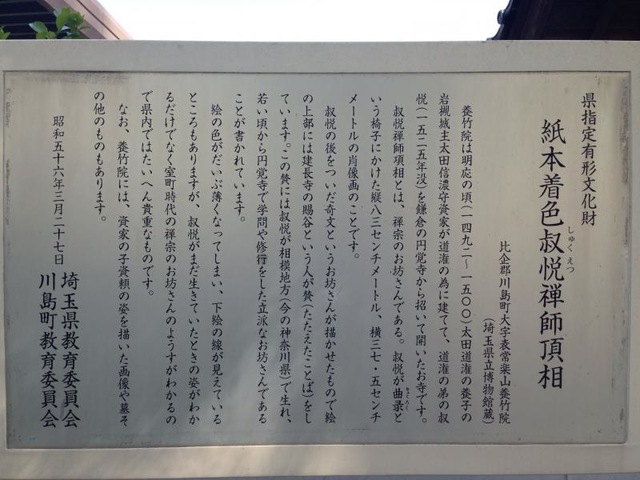 県指定有形文化財
紙本着色叔悦禅師頂相
しゅくえつ
比企郡川島町大字表常楽山養竹院
(埼玉県立博物館蔵)
養竹院は明応の頃(一四九二~一五〇〇)太田道灌の養子の
岩槻城主太田信濃守資家が道灌の為に建てて、道灌の弟の叔
悦(一五二五年没)を鎌倉の円覚寺から招いて開いたお寺です。
叔悦禅師頂相とは、禅宗のお坊さんである。叔悦が曲录と
いう椅子にかけた縦八三センチメートル、横三七・五センチ
メートルの肖像画のことです。
叔悦の後をついだ奇文というお坊さんが描かせたもので絵
の上部には建長寺の賜谷という人が賛(たたえたことば)をし
ています。この賛には叔悦が相模地方(今の神奈川県)で生れ、
若い頃から円覚寺で学問や修行をした立派なお坊さんである
ことが書かれています。
絵の色がだいぶ薄くなってしまい、下絵の線が見えている
ところもありますが、叔悦がまだ生きていたときの姿がわか
るだけでなく室町時代の禅宗のお坊さんのようすがわかるの
で県内ではたいへん貴重なものです。
なお、養竹院には、資家の子資頼の姿を描いた画像や墓そ
の他のものもあります。
昭和五十六年三月二十七日
埼玉県教育委員会
川島町教育委員会